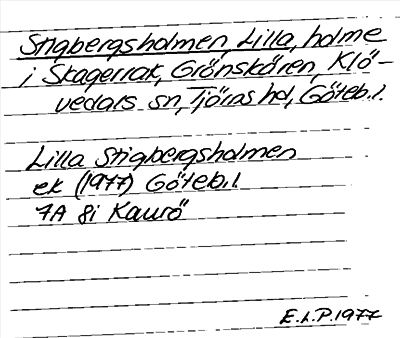 Stigbergsholmen, Lilla, holme
i Skagerrak, Grönskären, Klö-
vedals sn, Tjörns hd, Göteb.l.
Lilla Stigbergsholmen
ek (1977) Göteb.l.
7A 8i Kaurö
E.L.P. 1977